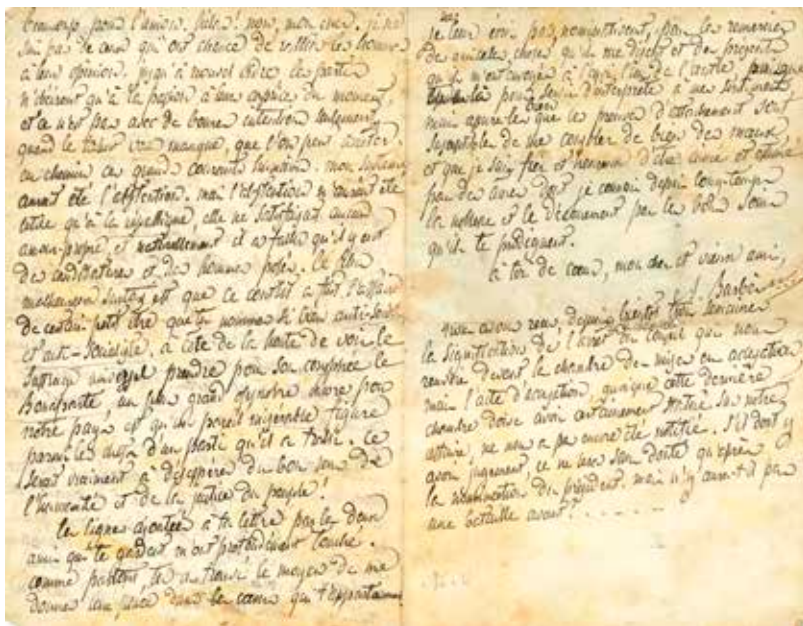 beaucoup pour l'union, hélas! non, mon cher, je ne
suis pas de ceux qui ont chance de rallier les hommes
à leur opinion.
n'obéissent qu'à la passion à leur caprice du moment,
et ce n'est pas avec de bonnes intentions seulement,
quand le vous manque, que l'on peut arrêter
en chemin ces grands courants humains. mon système
aurait été l'abstention. mais l'abstention n'aurait été
utile qu'à la république, elle ne satisfaisait aucun
amour-propre, et naturellement il a fallu qu'il y eut
des candidatures et des hommes posés. Le plus
malheureux surtout est que ce conflit a fait l'affaire
de certain petit être que tu nommes si bien anti-social
et anti-socialiste. à côté de la honte de voir le
suffrage universel prendre pour son compère le
Bonaparte, un plus grand opprobre encore pour
notre pays est qu'un pareil misérable figure
parmi les chefs d'un parti qu'il a trahi. Ce
serait vraiment à désespérer du bon sens de
l'humanité et de la justice du peuple!
les lignes ajoutées à ta lettre par les deux
amis qui te gardent m'ont profondément touché.
comme partout, tu as trouvé le moyen de me
donner une place dans les cœurs qui t'appartiennent
je leur écris pas, nominativement, pour les remercier
des amicales choses qu'ils me disent et des présents
qu'ils m'ont envoyés à l'un, l'un de l'autre
pour servir d'interprète à mes sentiments
mais assure les bien que les preuves d'attachement sont
susceptibles de me consoler de bien des maux,
et que je suis fier et heureux d'être aimé et estimé
par des âmes dont je connais depuis longtemps
la noblesse et le dévouement par les bons soins
qu'ils te prodiguent.
à toi de cœur, mon cher et vieux ami,
Barbès
nous avons reçu, depuis bientôt trois semaines
la signification de l'arrêt du conseil qui nous
renvoie devant la chambre de mise en accusation
mais l'acte d'accusation, quoique cette dernière
chambre doive avoir certainement statué sur notre
affaire, ne nous a pas encore été notifié. S'il doit y
avoir jugement, ce ne sera sans doute qu'après
la nomination du président. mais n'y aura-t-il pas
une bataille avant? . . . . . .